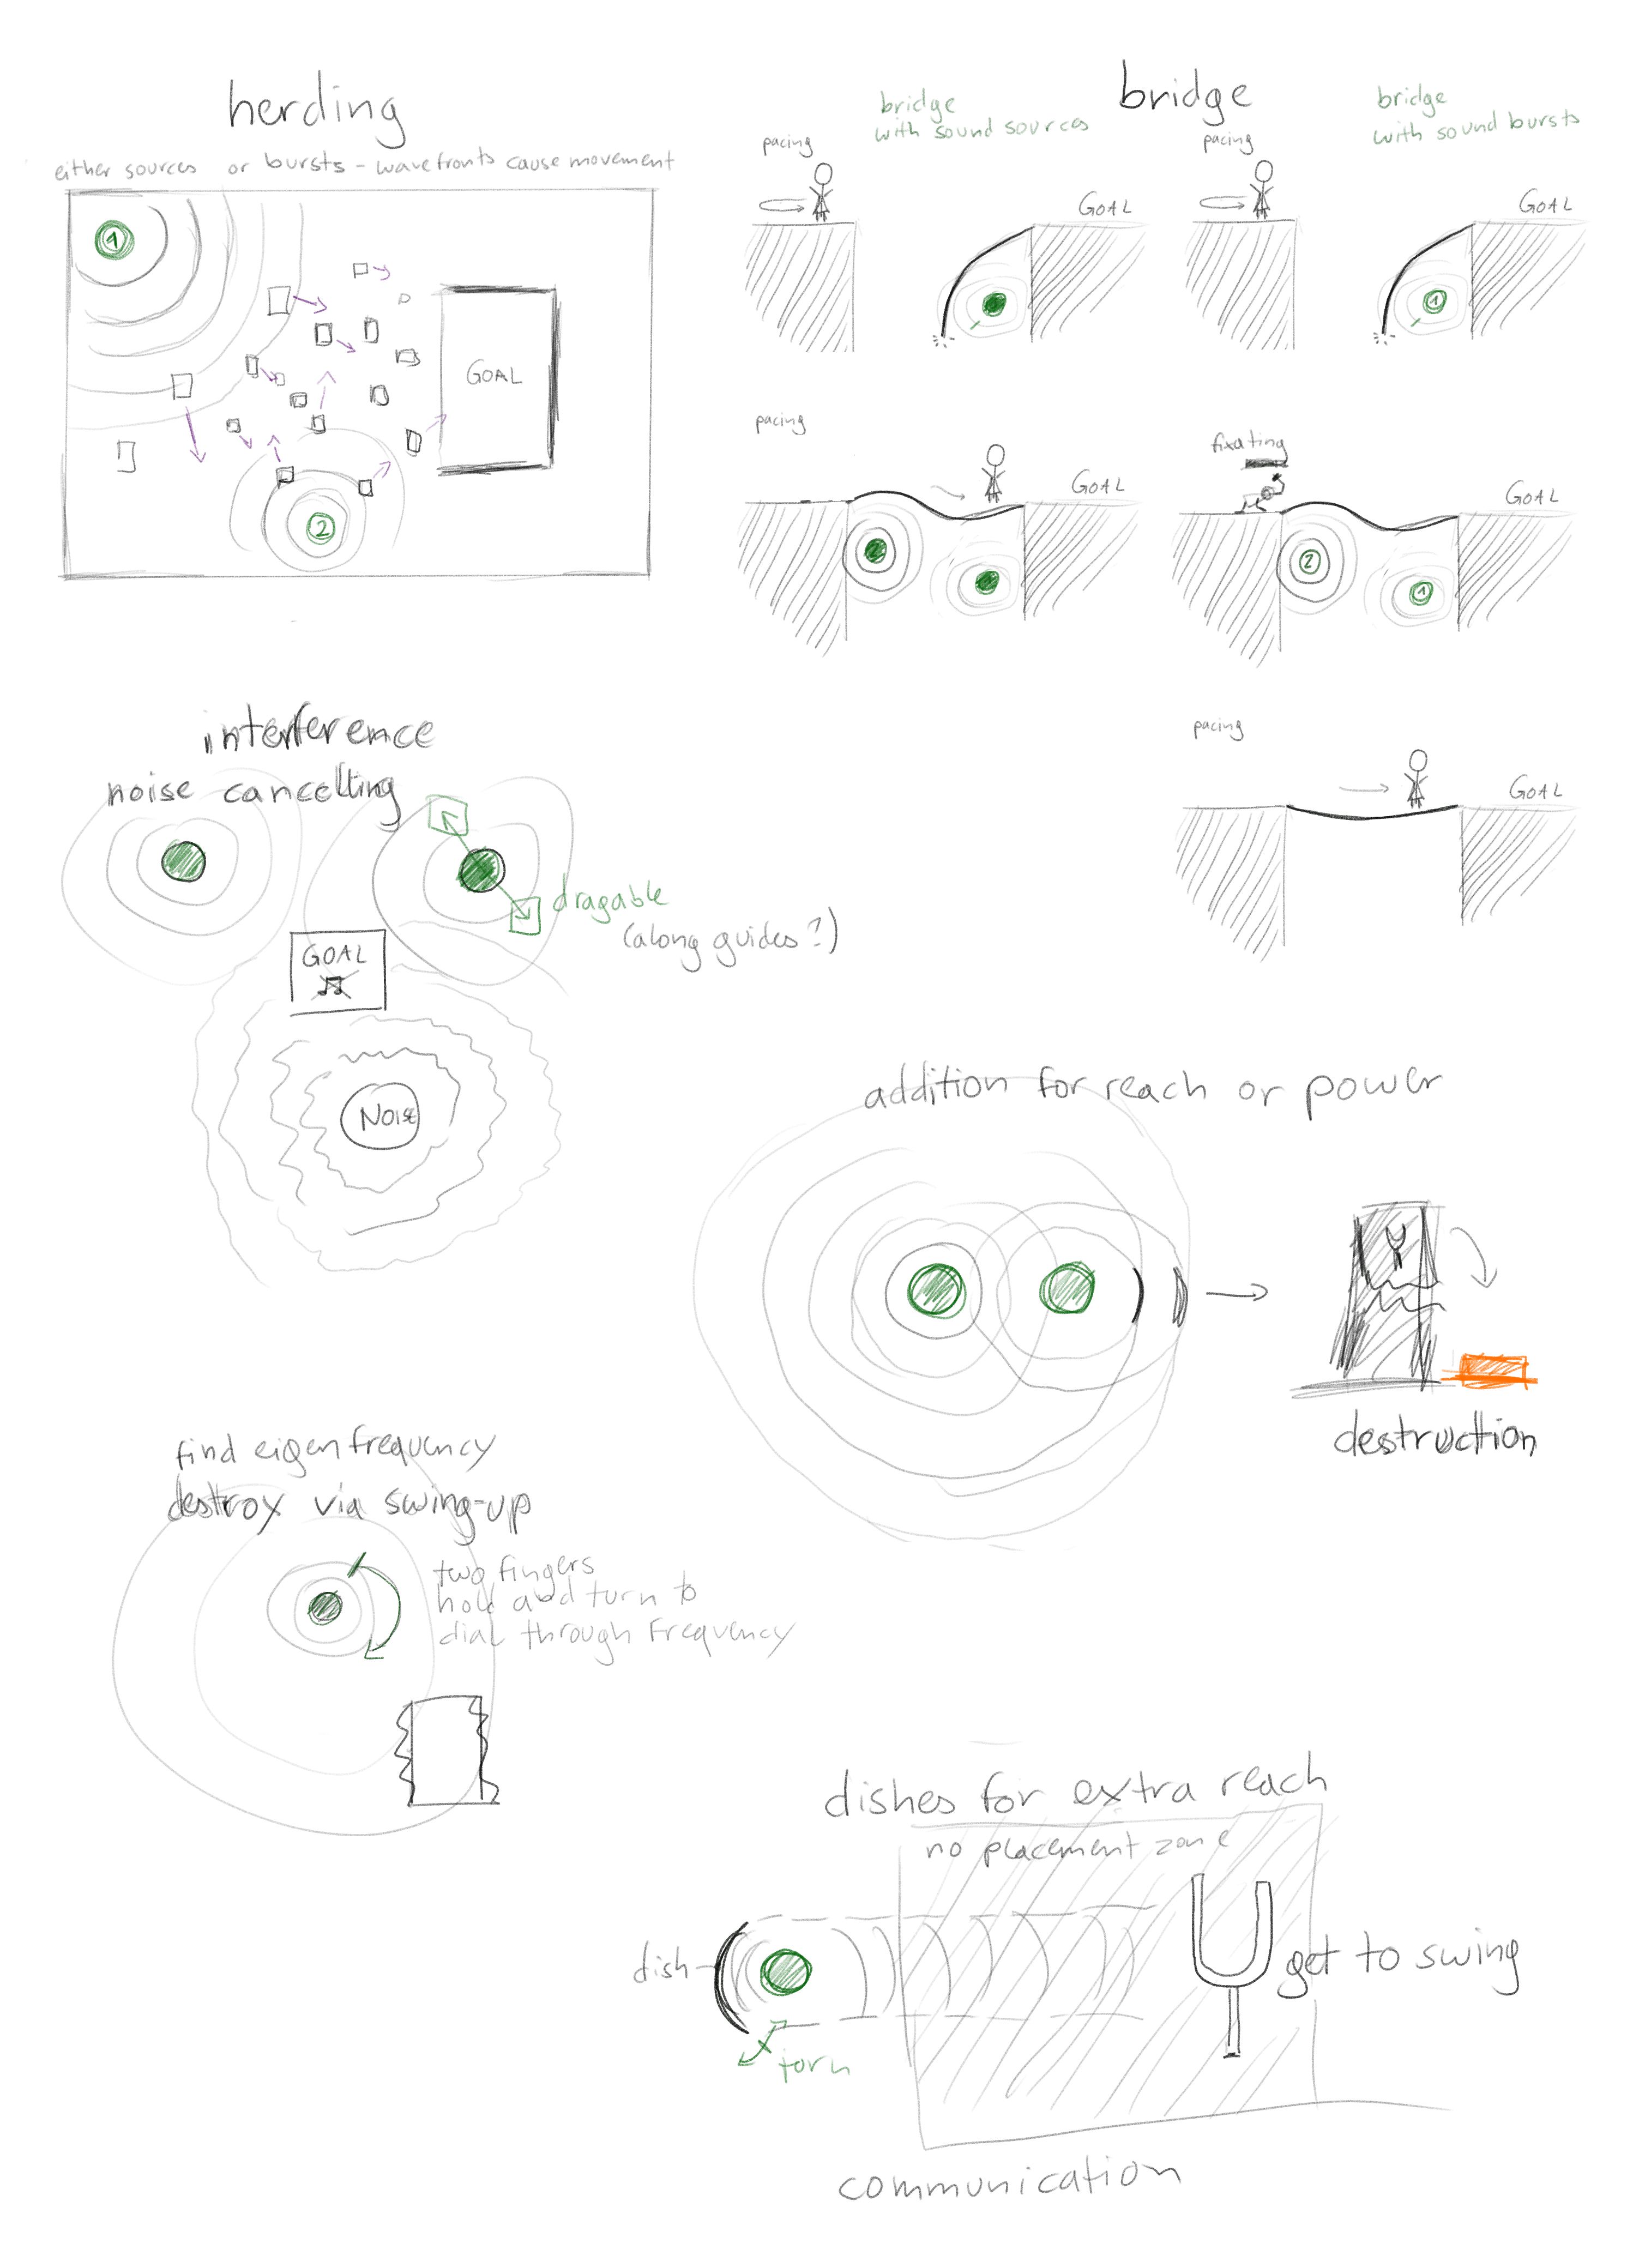 herding
either sources or bursts - wavefronts cause movement
1
GOAL
2
bridge
bridge
with sound sources
bridge
with sound bursts
pacing
GOAL
pacing
GOAL
1
pacing
GOAL
fixating
GOAL
2
1
pacing
GOAL
interference
noise cancelling
dragable
(along guides?)
GOAL
NOISE
addition for reach or power
destruction
find eigenfrequency
destroy via swing-up
two fingers
hold and turn to
dial through frequency
dishes for extra reach
no placement zone
dish
get to swing
turn
communication